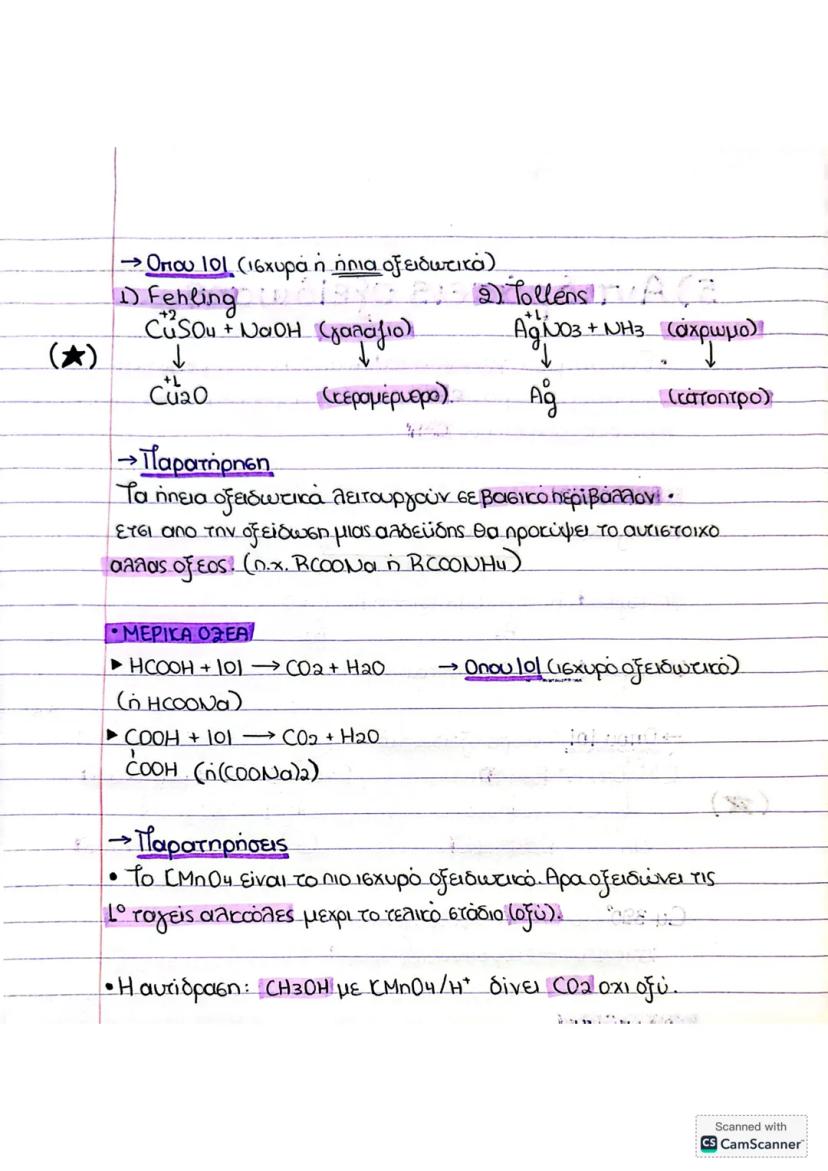 → Οπου |0| (ισχυρά ή ήπια οξειδωτικά)
1) Fehling 2) Tollens
+2 +1
CuSO4 + NaOH (γαλάζιο) AgNO3 + NH3 (άχρωμο)
(★) ↓ ↓ ↓ ↓
+1 0
Cu2O (κεραμέρυθρο). Ag (κάτοπτρο)
→ Παρατήρηση
Τα ήπεια οξειδωτικά λειτουργούν σε βασικό περιβάλλον.
ετσι απο την οξείδωση μιας αλδεΰδης θα προκύψει το αντιστοιχο
αλλας οξεος. (π.χ. RCOONa ή RCOONH4)
• ΜΕΡΙΚΑ ΟΞΕΑ
▸ HCOOH + |0| → CO2 + H2O → Οπου |0| (ισχυρό οξειδωτικό)
(ή HCOONa)
▸ COOH + |0| → CO2 + H2O
COOH (ή (COONa)2)
→ Παρατηρήσεις
• Το KMnO4 είναι το πιο ισχυρό οξειδωτικό. Αρα οξειδώνει τις
1° ταγείς αλκοόλες μεχρι το τελικό στάδιο (οξύ).
• Η αντίδραση: CH3OH με KMnO4/H⁺ δίνει CO2 οχι οξύ.
Scanned with
CS CamScanner